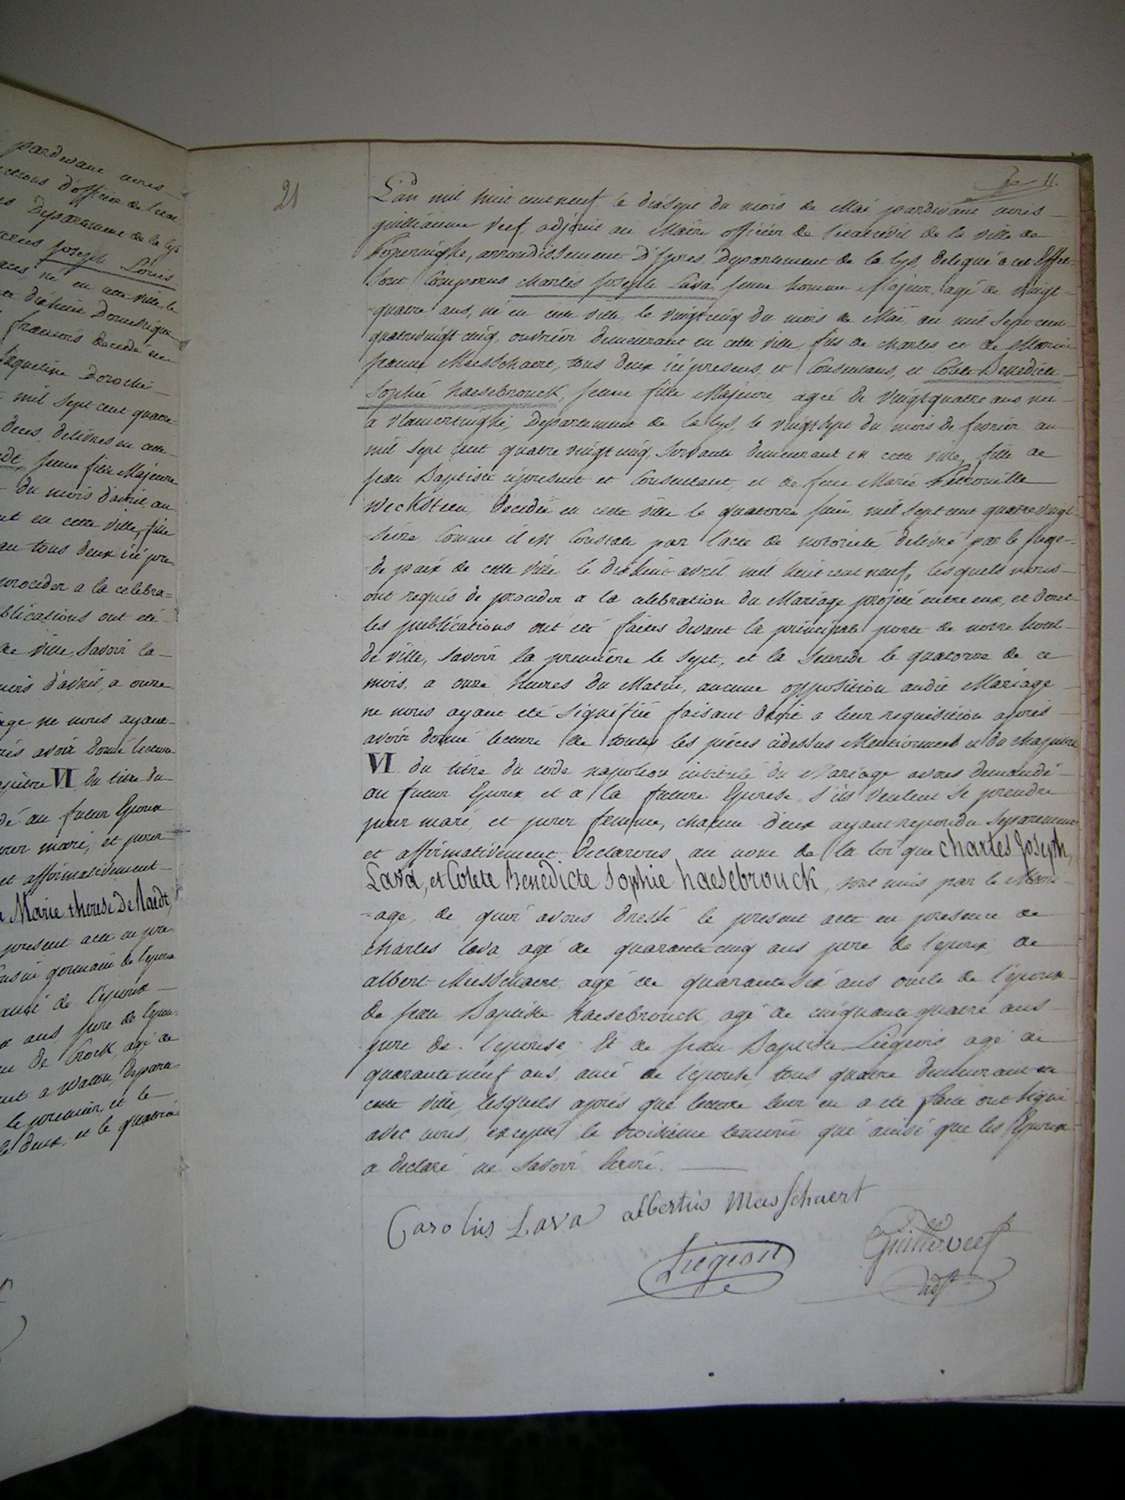 21
11.
L'an mil huit cent neuf le dixsept du mois de Mai pardevant nous
guillieaume Veef adjoint au Maire officier de l'etat civil de la ville de
Poperinghe, arrondissement d'Ypres Departement de la Lys, delegué a cet Effet
sont Comparus Charles Joseph Lava jeune homme Majeur, agé de vingt
quatre ans, né en cette ville le vingt cinq du mois de Mai, an mil Sept cent
quatrevingt cinq, ouvrier demeurant en cette ville, fils de charles et de Marie
jeanne Messchaert, tous deux ici presens, et Consentans, et Colete Benedicte
Sophie haesebrouck, jeune fille Majeure agée de vingtquatre ans née
a vlamertinghe, Departement de la lys, le vingt sept du mois de fevrier an
mil sept cent quatre vingt cinq, servante demeurant en cette ville, fille de
jean Baptiste ici present et Consentant et de feue Marie Petronille
Wecksteen, Decedée en cette ville le quatorze juin, mil sept cent quatre vingt
seize Comme il est Constaté par l'acte de notorieté delivré par le juge
de paix de cette ville le dixhuit avril mil huit cent neuf, lesquels nous
ont requis de proceder a la celebration du Mariage projeté entre eux, et dont
les publications ont été faites devant la principale porte de notre hotel
de ville, savoir la premiere le sept, et la Seconde le quatorze de ce
mois, a onze heures du Matin, aucune opposition audit Mariage
ne nous ayant été signifiée faisant droit a leur requisition apres
avoir donné lecture de toutes les pièces cidessus Mentionnées et du chapitre
VI du titre du code napoleon intitulé du Mariage avons demandé
au futur Epoux et a la future Epouse, s'ils veulent se prendre
pour mari, et pour femme, chacun d'eux ayant repondu Separement
et affirmativement Declarons au nom de la loi que charles Joseph,
Lava, et Colete Benedicte Sophie haesebrouck, sont unis par le Mari-
-age, de quoi avons dressé le present acte en presence de
charles lava agé de quarante cinq ans pere de l'epoux, de
albert Messchaert, agé de quarante six ans oncle de l'epoux
de jean Baptiste haesebrouck, agé de cinquante quatre ans
pere de l'epouse, Et de jean Baptiste Liégeois agé de
quarante neuf ans, ami de l'epouse, tous quatre demeurant en
cette ville, lesquels après que lecture leur en a été faite ont signé
avec nous, excepté le troisième temoin qui ainsi que les Epoux
a declaré ne Savoir Ecrire.
Carolus Lava albertus Messchaert
Liégeois
Guill Veef
adjt
pardevant nous
Departement de la Lys
Joseph Louis
mil sept cent quatre
jeune fille Majeure
du mois d'avril an
en cette ville, fille
tous deux ici pre
proceder a la celebra=
publications ont été
de ville, Savoir la
d'avril, a onze
ne nous ayant
avoir donné lecture
VI du titre du
au futur Epoux
mari, et pour
et affirmativement
Marie therese De Naedt,
present acte en pre
germain de l'epoux
ami de l'epoux
ans pere de l'epou
agé de
a Watou, Departe
le premier, et le
deux, et le quatriè